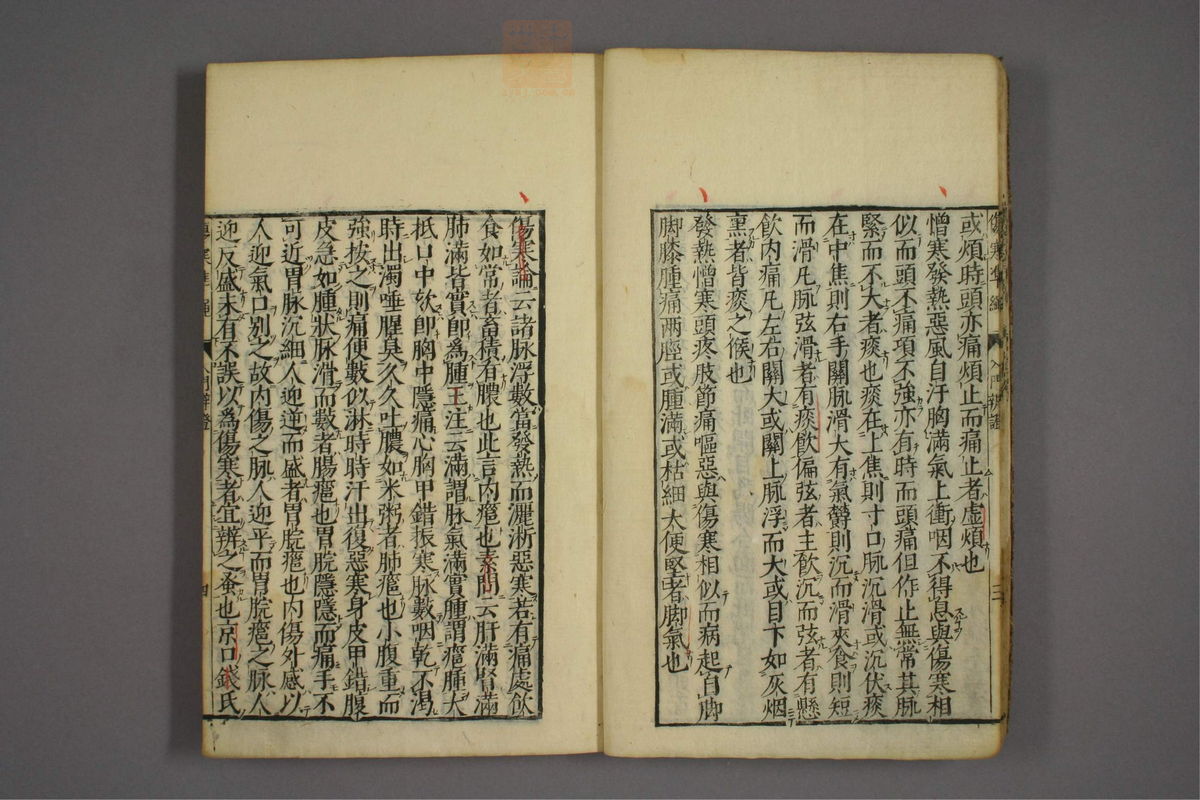 傷寒準繩 入門辨證 三
或煩時頭亦痛煩止而痛止者虛煩也
憎寒發熱惡風自汗胸滿氣上衝咽不得息與傷寒相
似而頭不痛項不強亦有時而頭痛但作止無常其脉
緊而不大者痰也痰在上焦則寸口脉沉滑或沉伏痰
在中焦則右手關脉滑大有氣欝則沉而滑夾食則短
而滑凡脉弦滑者有痰飲偏弦者主飲沉而弦者有懸
飲内痛凡左右關大或關上脉浮而大或目下如灰烟
熏者皆痰之候也
發熱憎寒頭疼肢節痛嘔惡與傷寒相似而病起自脚
脚膝腫痛兩脛或腫滿或枯細大便堅者脚氣也
傷寒論云諸脉浮數當發熱而灑淅惡寒若有痛處飲
食如常者畜積有膿也此言内癰也素問云肝滿腎滿
肺滿皆實即爲腫王注云滿謂脉氣滿實腫謂癰腫大
抵口中欬即胸中隱痛心胸甲錯振寒脉數咽乾不渴
時出濁唾腥臭久久吐膿如米粥者肺癰也小腹重而
強按之則痛便數似淋時時汗出復惡寒身皮甲錯腹
皮急如腫狀脉滑而數者腸癰也胃脘隱隱而痛手不
可近胃脉沉細人迎逆而盛者胃脘癰也内傷外感以
人迎氣口别之故内傷之脉人迎平而胃脘癰之脉人
迎反盛未有不誤以爲傷寒者宜辨之蚤也京口錢氏
傷寒準繩 入門辨證 四